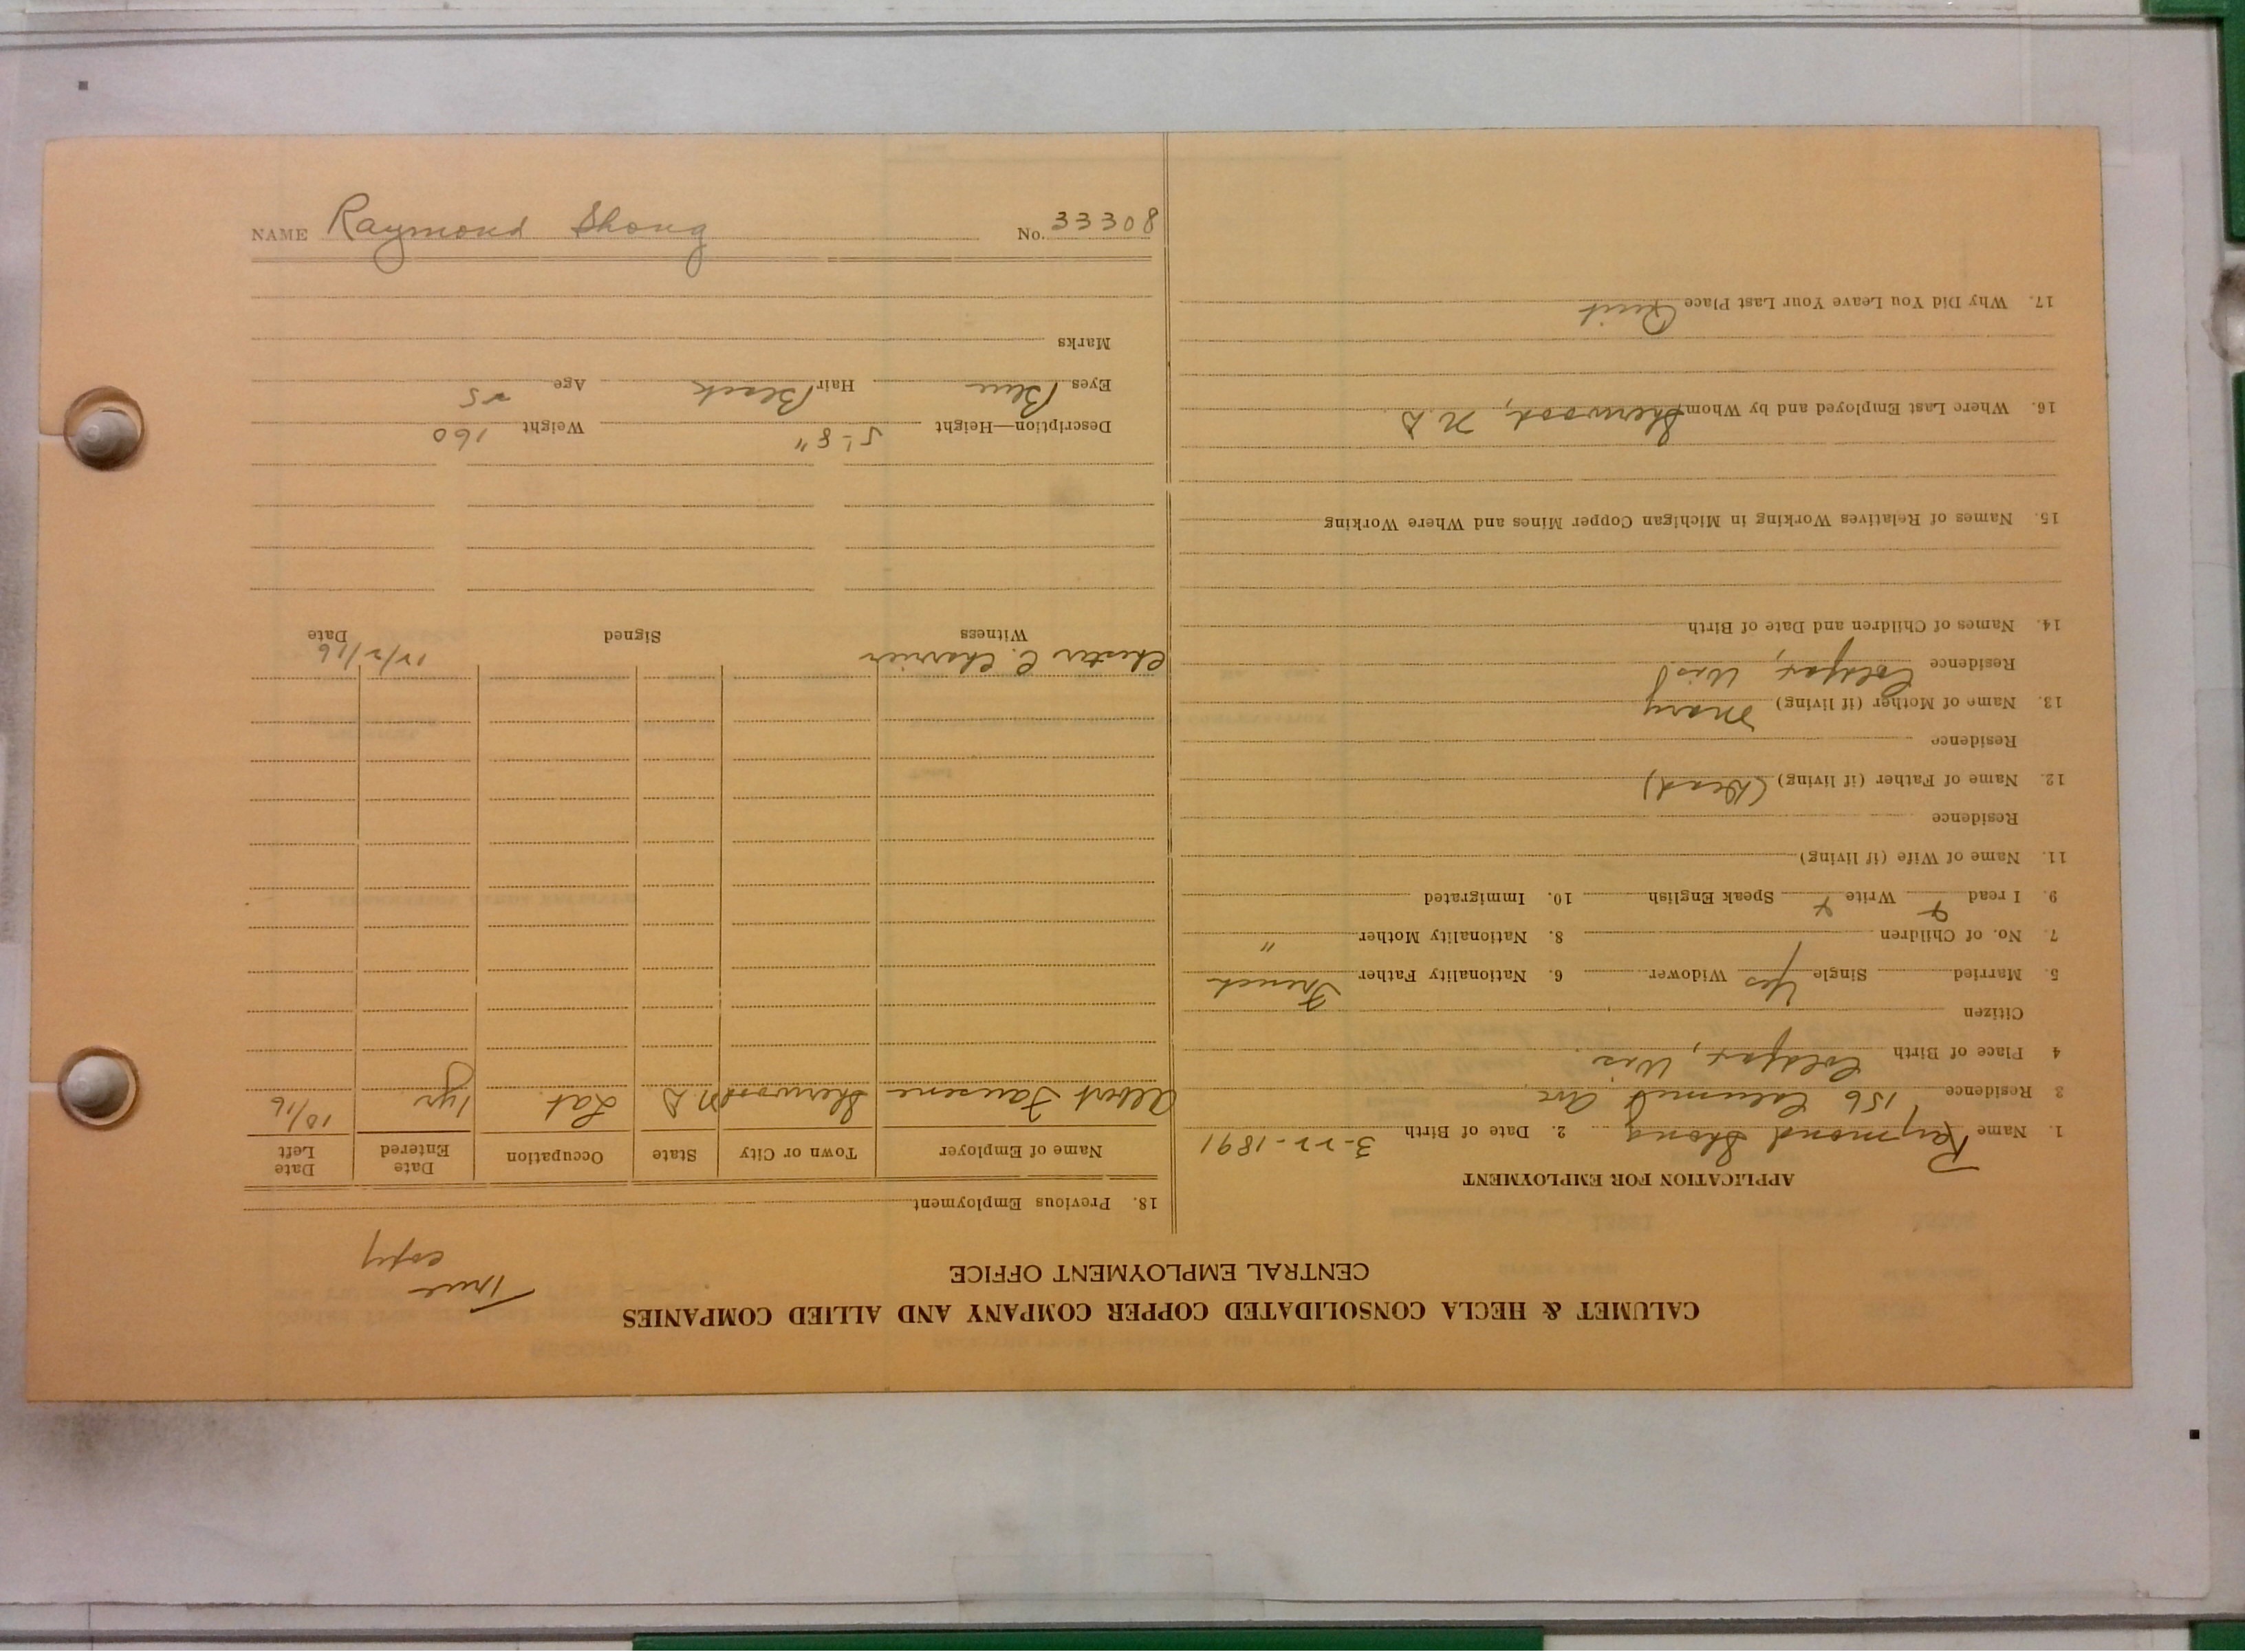 NAME Raymond Shong No. 33308
CALUMET & HECLA CONSOLIDATED COPPER COMPANY AND ALLIED COMPANIES
CENTRAL EMPLOYMENT OFFICE
True
copy
APPLICATION FOR EMPLOYMENT
1. Name Raymond Shong 2. Date of Birth 3-22-1891
3 Residence 156 Calumet Ave
4 Place of Birth Colfax, Wis.
Citizen
5. Married Single Yes Widower 6. Nationality Father French
7. No. of Children 8. Nationality Mother "
9. I read Write Speak English 10. Immigrated
11. Name of Wife (if living)
Residence
12. Name of Father (if living) (Dead)
Residence
13. Name of Mother (if living) Mary
Residence Colfax, Wis
14. Names of Children and Date of Birth
15. Names of Relatives Working in Michigan Copper Mines and Where Working
16. Where Last Employed and by Whom Sherwood, N.D.
17. Why Did You Leave Your Last Place Quit
18. Previous Employment
Name of Employer Town or City State Occupation Date Entered Date Left
Albert Sherwood N.D Lab 1yr 10/16
Chester C. Charrier 12/2/16
Witness Signed Date
Description—Height 5-8" Weight 160
Eyes Blue Hair Black Age 25
Marks